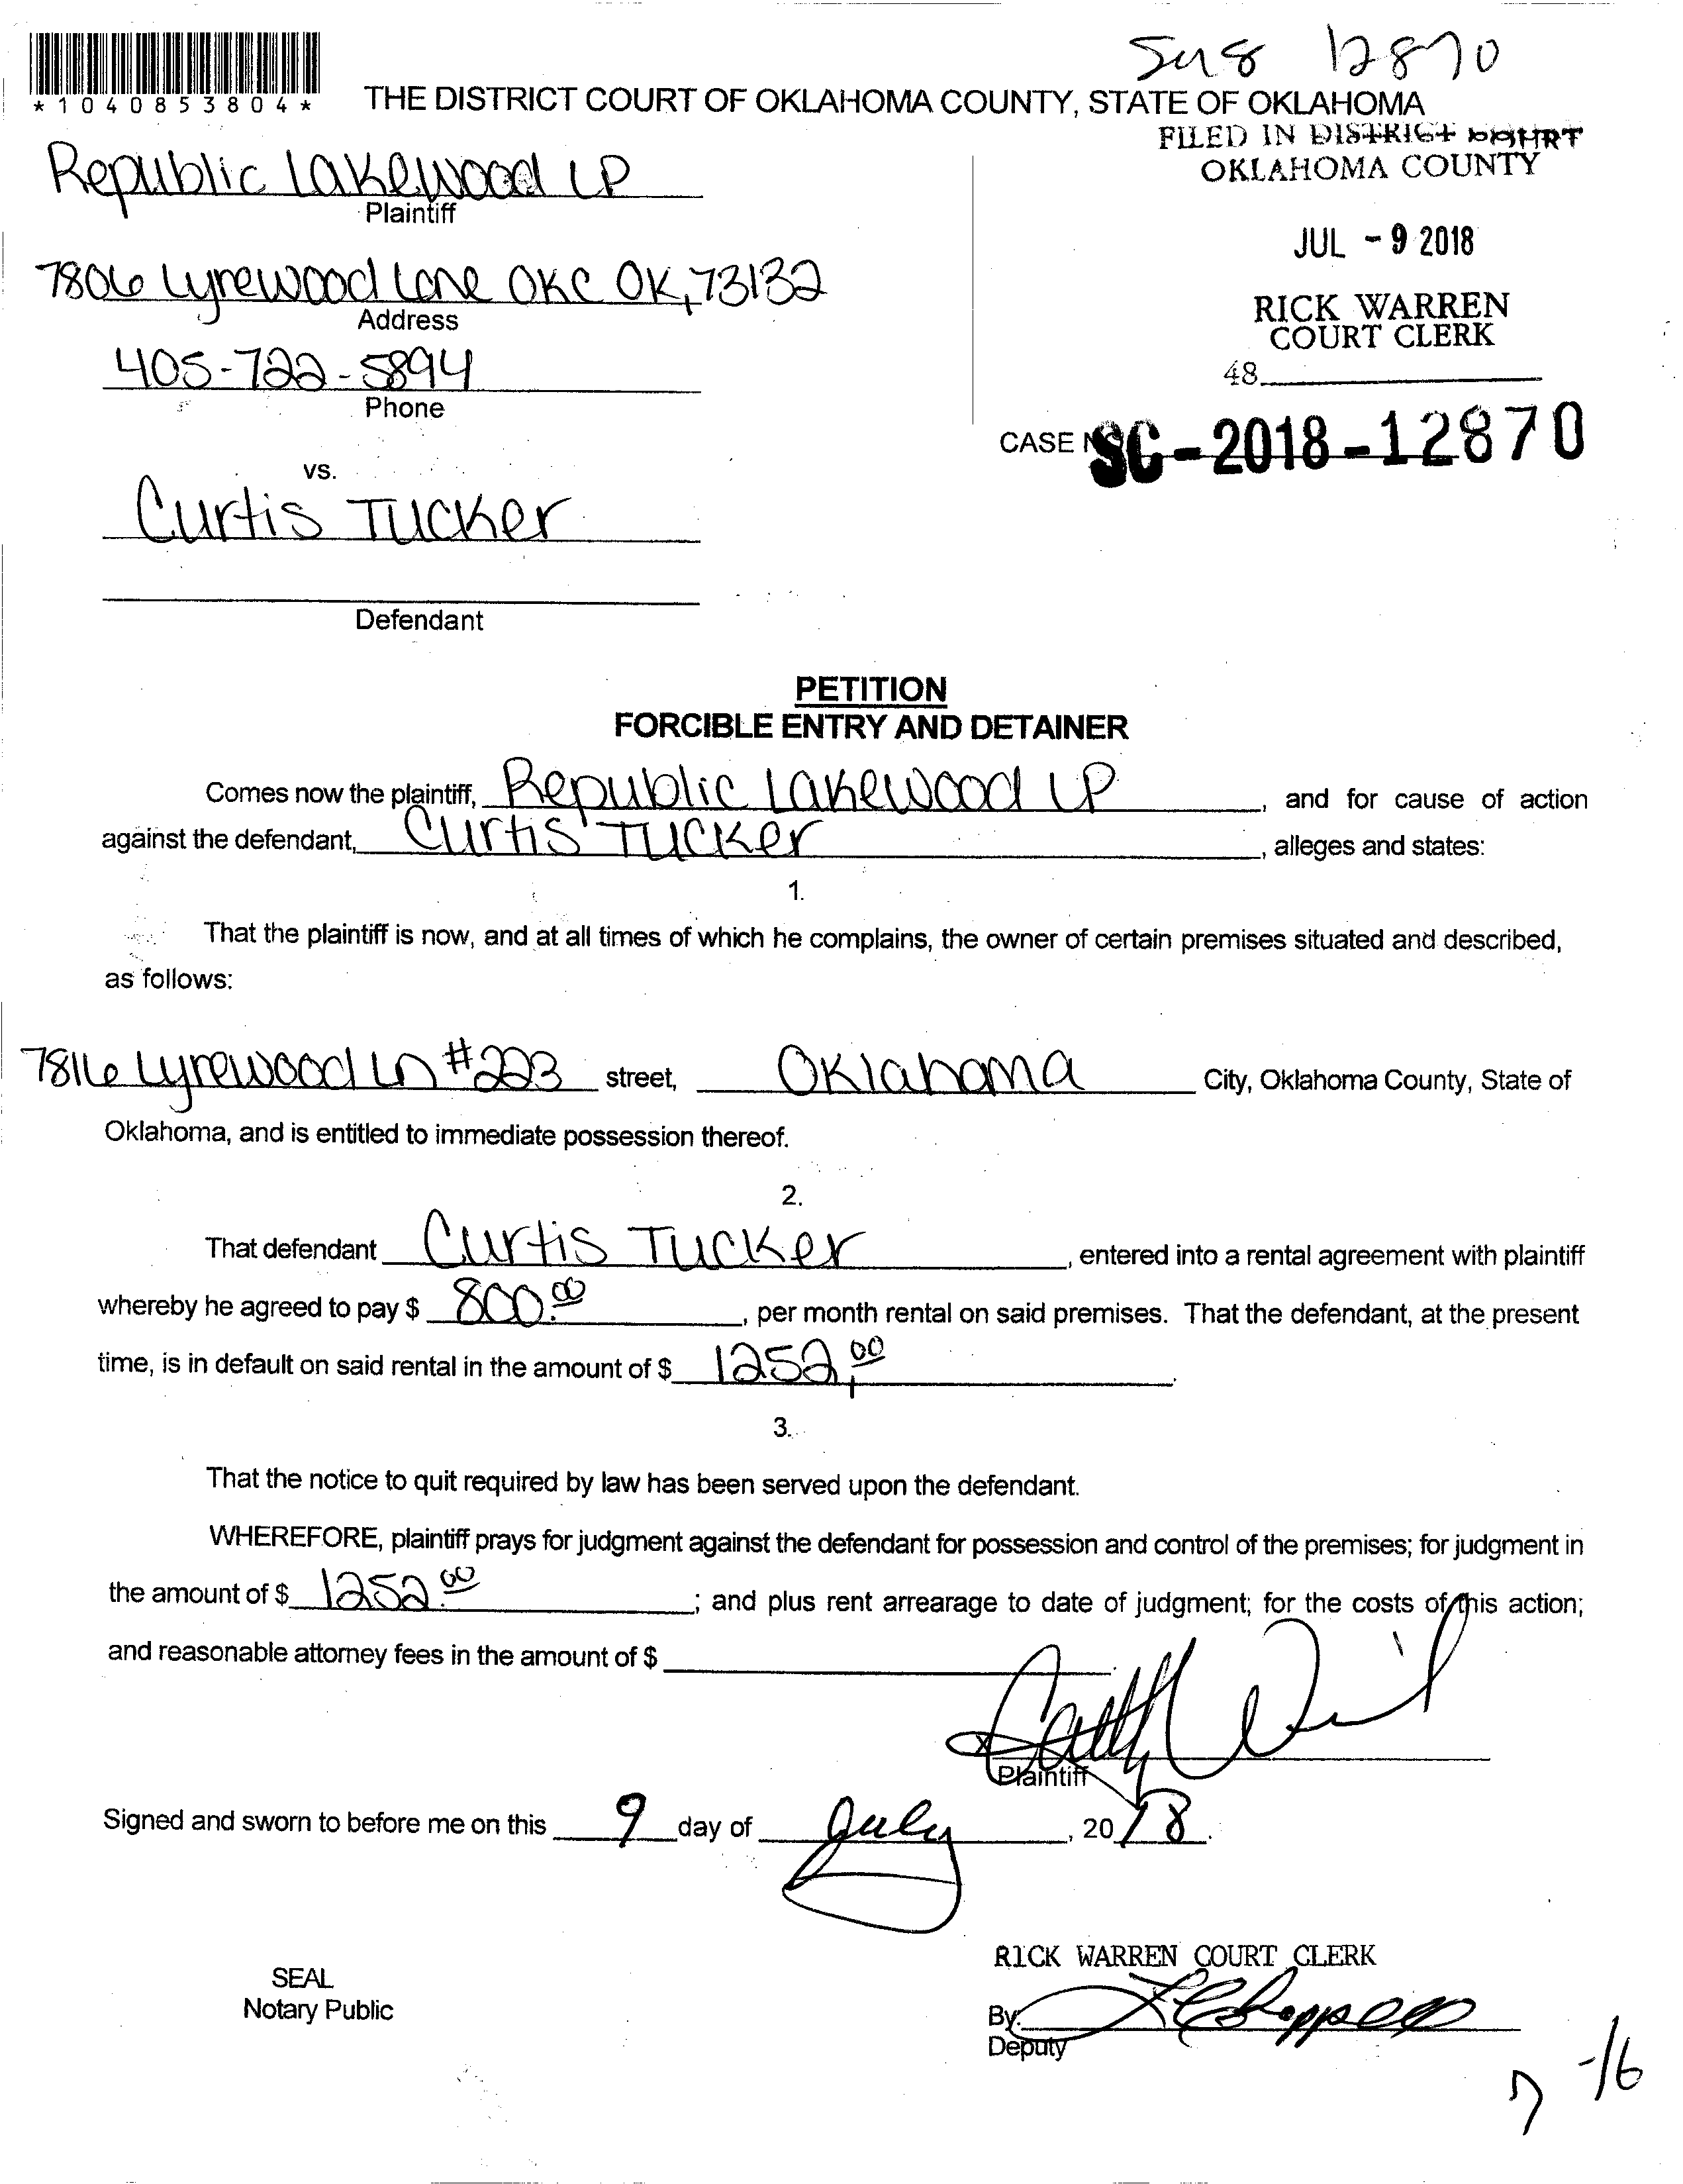 12870
*1040853804*
THE DISTRICT COURT OF OKLAHOMA COUNTY, STATE OF OKLAHOMA
FILED IN DISTRICT COURT
OKLAHOMA COUNTY
Republic Lakewood LP
Plaintiff
JUL - 9 2018
7806 Lyrewood Lane OKC OK, 73132
Address
RICK WARREN
COURT CLERK
405-722-5894
Phone
48
CASE NO. SC-2018-12870
vs.
Curtis Tucker
Defendant
PETITION
FORCIBLE ENTRY AND DETAINER
Comes now the plaintiff, Republic Lakewood LP, and for cause of action
against the defendant, Curtis Tucker, alleges and states:
1.
That the plaintiff is now, and at all times of which he complains, the owner of certain premises situated and described,
as follows:
7816 Lyrewood Ln #223 street, Oklahoma City, Oklahoma County, State of
Oklahoma, and is entitled to immediate possession thereof.
2.
That defendant Curtis Tucker, entered into a rental agreement with plaintiff
whereby he agreed to pay $ 800.00, per month rental on said premises. That the defendant, at the present
time, is in default on said rental in the amount of $ 1252.00.
3.
That the notice to quit required by law has been served upon the defendant.
WHEREFORE, plaintiff prays for judgment against the defendant for possession and control of the premises; for judgment in
the amount of $ 1252.00; and plus rent arrearage to date of judgment; for the costs of this action;
and reasonable attorney fees in the amount of $
Plaintiff
Signed and sworn to before me on this 9 day of July, 2018.
RICK WARREN COURT CLERK
SEAL
Notary Public
By:
Deputy
7-16